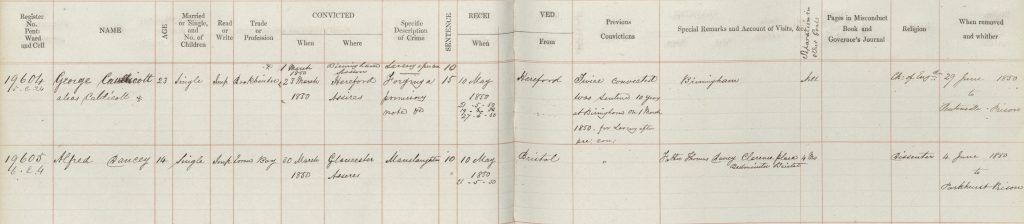 Register No. Pent: Ward and Cell
NAME
AGE
Married or Single, and No. of Children
Read or Write
Trade or Profession
CONVICTED
When
Where
Specific Description of Crime
SENTENCE
RECEIVED
When
From
Previous Convictions
Special Remarks and Account of Visits, &c.
Separation in other Prisons
Pages in Misconduct Book and Governor's Journal
Religion
When removed and whither
1 March 1850 Birmingham Assizes Larceny 10
19604 George Caldicott 23 Single Imp 23 March Hereford Forging a 15 10 May Hereford Twice convicted Birmingham Ch. of Eng. 29 June 1850
alias Caldicott & 1850 Assizes promissory 1850 was Sentenced 10 years to
note &c at Birmingham on 1 March Portsmouth Prison
1850 for Larceny after
pre. con.
19605 Alfred Dancey 14 Single Imp Errand Boy 30 March Gloucester Manslaughter 10 10 May Bristol " Father Thomas Dancy Clarence place Dissenter 4 June 1850
6.2.4 1850 Assizes 1850 Bedminster Bristol to
21-5-50 Parkhurst Prison